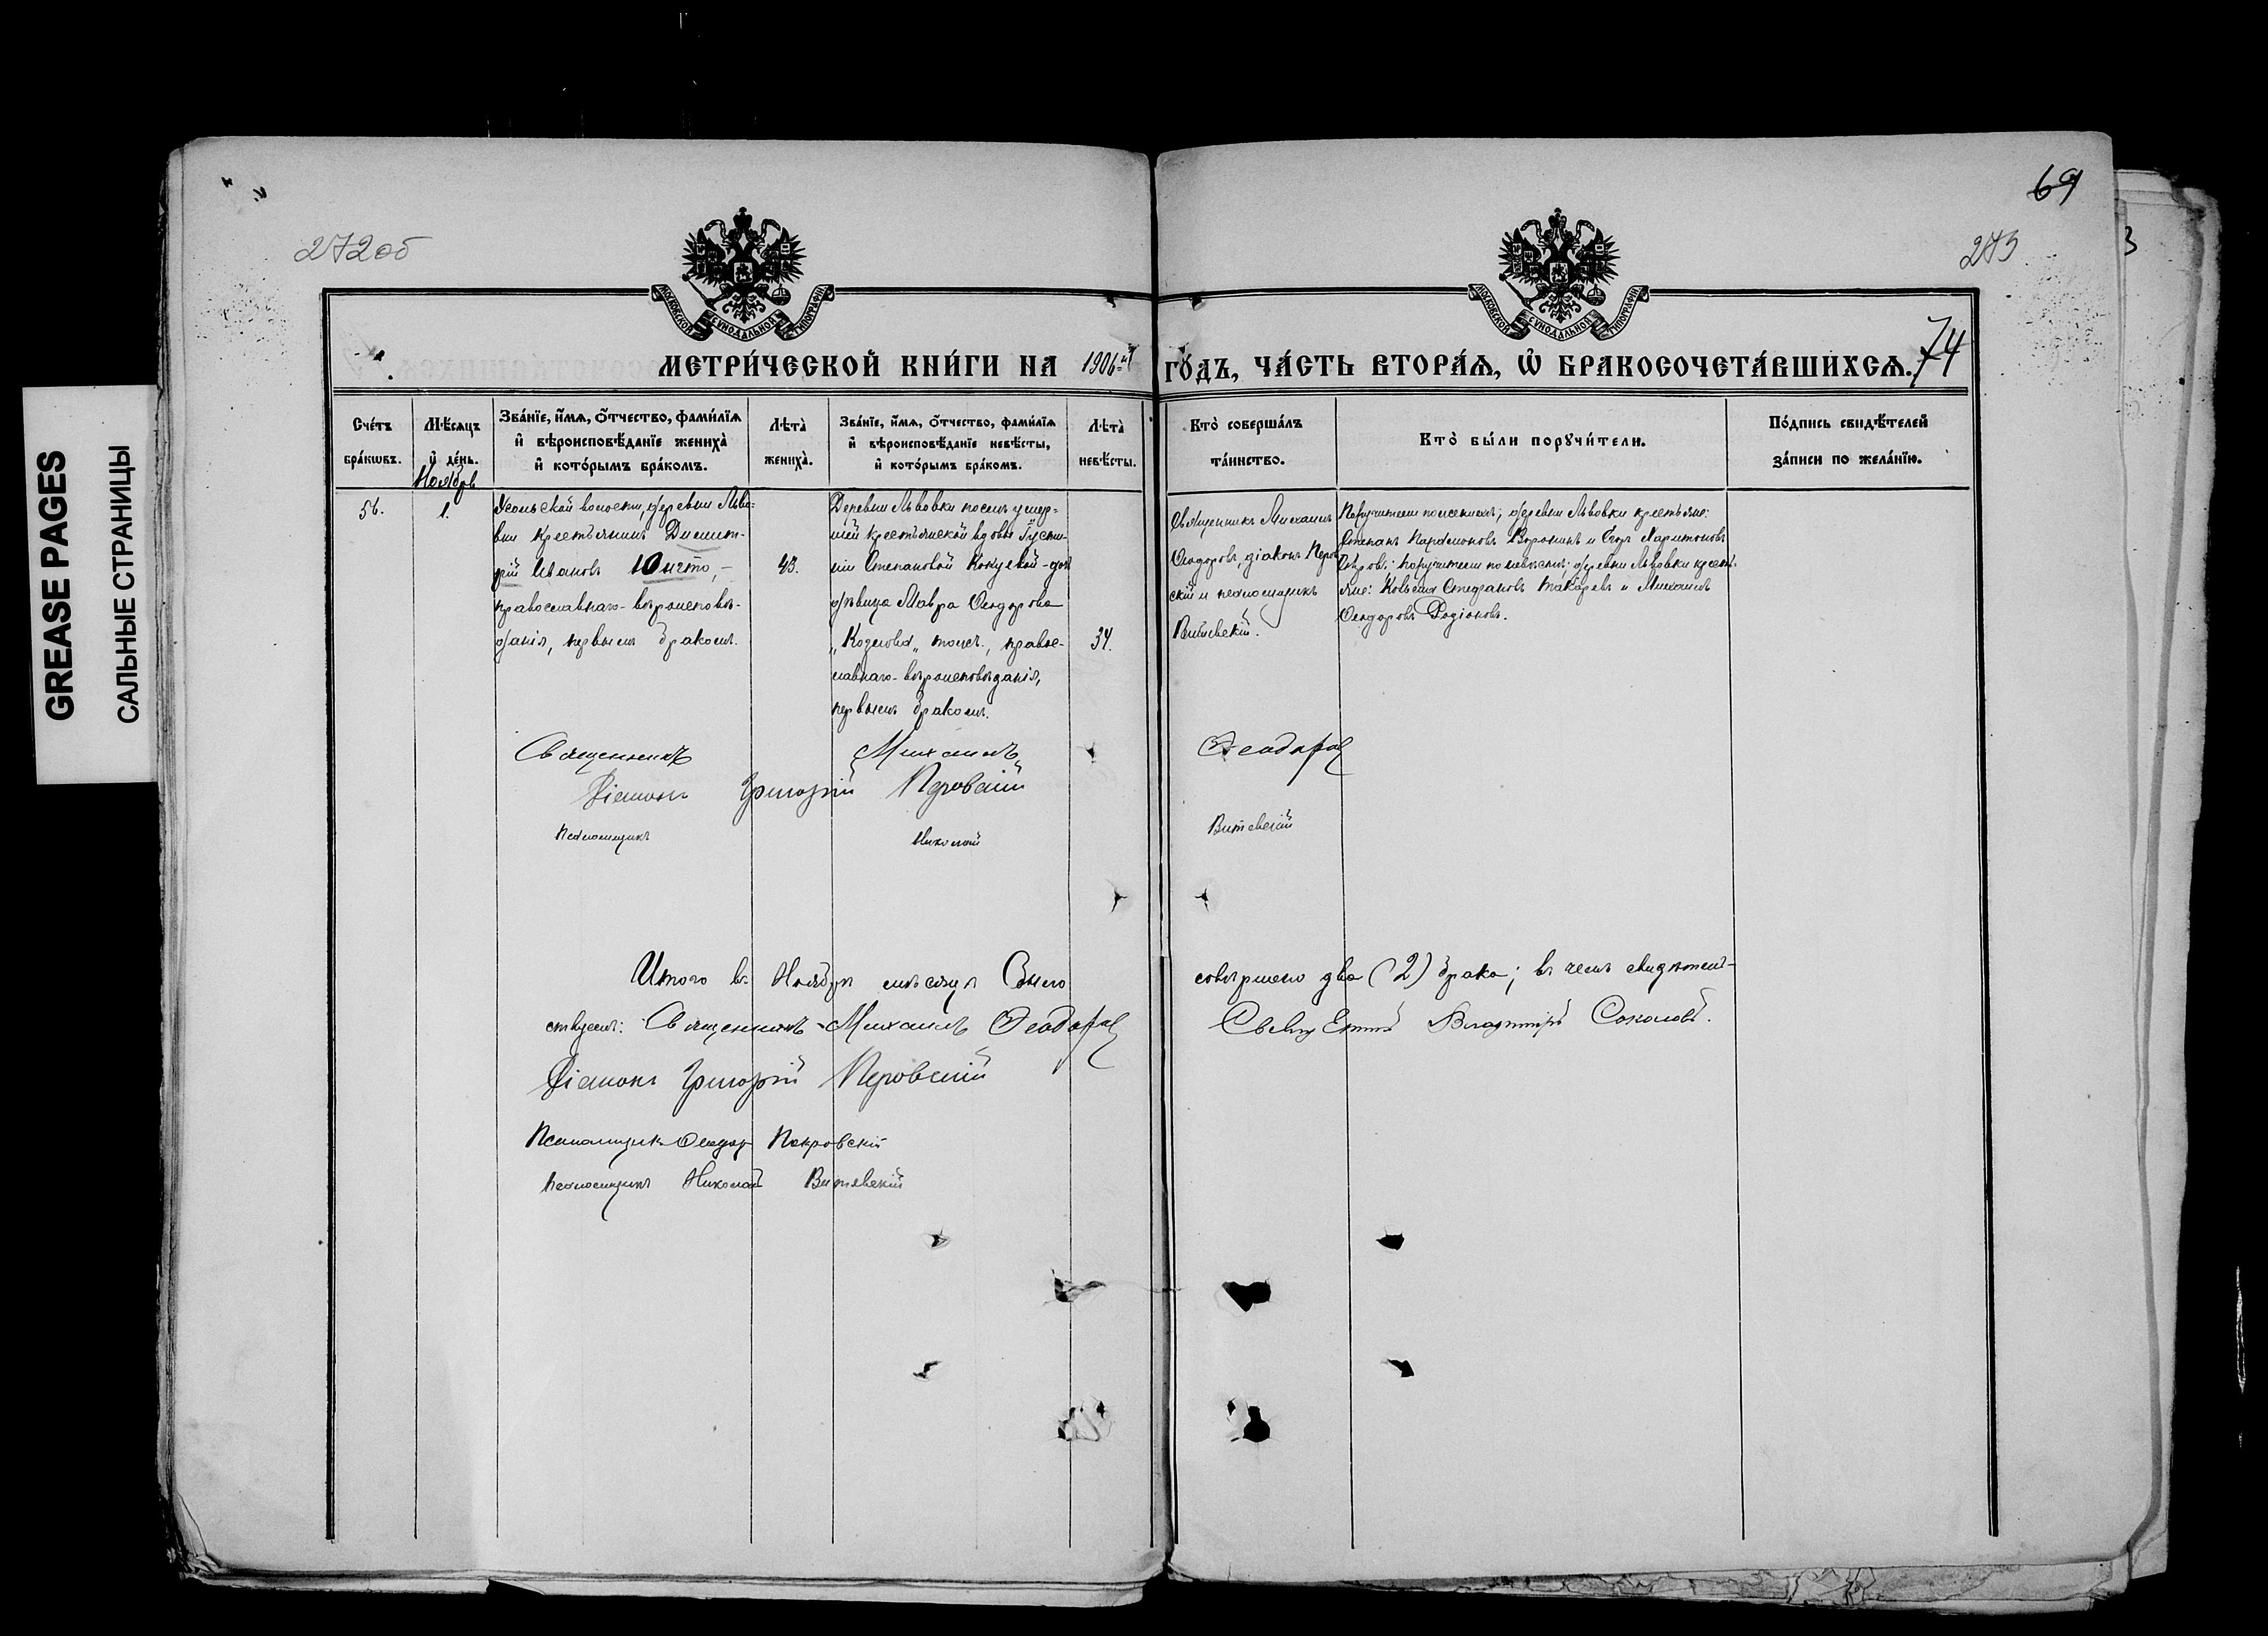 GREASE PAGES
САЛЬНЫЕ СТРАНИЦЫ
272об
69
273
3
МОСКОВСКОЙ СѴНОДАЛЬНОЙ ТИПОГРАФІИ
МОСКОВСКОЙ СѴНОДАЛЬНОЙ ТИПОГРАФІИ
МЕТРИ́ЧЕСКОЙ КНИ́ГИ НА 1906-й ГО́ДЪ, ЧА́СТЬ ВТОРА́Ѧ, Ѡ҆ БРАКОСОЧЕТА́ВШИХСѦ.
74
Сче́тъ бра́кѡвъ.
Мѣ́сѧцъ и҆ де́нь.
Зва́нїе, и҆́мѧ, ѻ҆́тчество, фами́лїѧ и҆ вѣроисповѣ́данїе жениха̀ и҆ кото́рымъ бра́комъ.
Лѣта̀ жениха̀.
Зва́нїе, и҆́мѧ, ѻ҆́тчество, фами́лїѧ и҆ вѣроисповѣ́данїе невѣ́сты, и҆ кото́рымъ бра́комъ.
Лѣта̀ невѣ́сты.
Кто̀ соверша́лъ та́инство.
Кто̀ бы́ли порꙋчи́тели.
По́дпись свидѣ́телей за́писи по жела́нїю.
Ноябрь
56.
1.
волости, деревни Льво-
вки крестьянинъ Димит-
рій Ивановъ
православнаго-вѣроисповѣ-
данія, первымъ бракомъ.
43.
Деревни Львовки послѣ умер-
шей крестьянской вдовы Густи-
ніи Степановой
дѣвица Мавра Ѳеодорова
„Козлова„ тоже, правос-
лавнаго-вѣроисповѣданія,
первымъ бракомъ.
34.
Священникъ Михаилъ
Ѳеодоровъ, діаконъ Перов
скій и псаломщикъ
Витевскій.
Поручители по женихѣ; деревни Львовки крестьяне:
Степанъ Парамоновъ Воронинъ и Егоръ Харитоновъ
поручители по невѣстѣ; деревни Львовки кресть-
яне: Стефановъ Токаревъ и Михаилъ
Ѳеодоровъ Родіоновъ.
Священникъ Михаилъ Ѳеодоровъ
Діаконъ Григорій Перовскій
Псаломщикъ Николай Витевскій
Итого въ Ноябрѣ мѣсяцѣ было совершено два (2) брака; въ чемъ свидѣтель-
ствуемъ: Священникъ Михаилъ Ѳеодоровъ Священникъ Владиміръ Соколовъ.
Діаконъ Григорій Перовскій
Псаломщикъ Ѳеодоръ Покровскій
Псаломщикъ Николай Витевскій